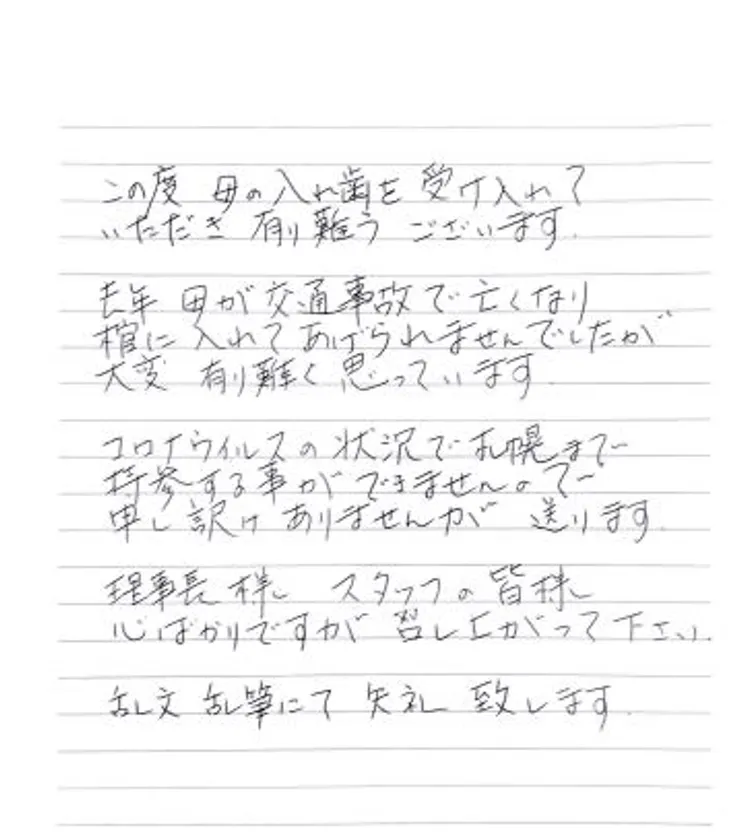 この度 母の入れ歯を 受け入れて
いただき 有り難う ございます.
去年 母が交通事故で亡くなり
棺に入れてあげられませんでしたが
大変 有り難く思っています.
コロナウイルスの状況で札幌まで
持参する事ができませんので
申し訳けありませんが 送ります.
理事長様 スタッフの皆様
心ばかりですが 召し上がって下さい.
乱文 乱筆にて 失礼 致します.